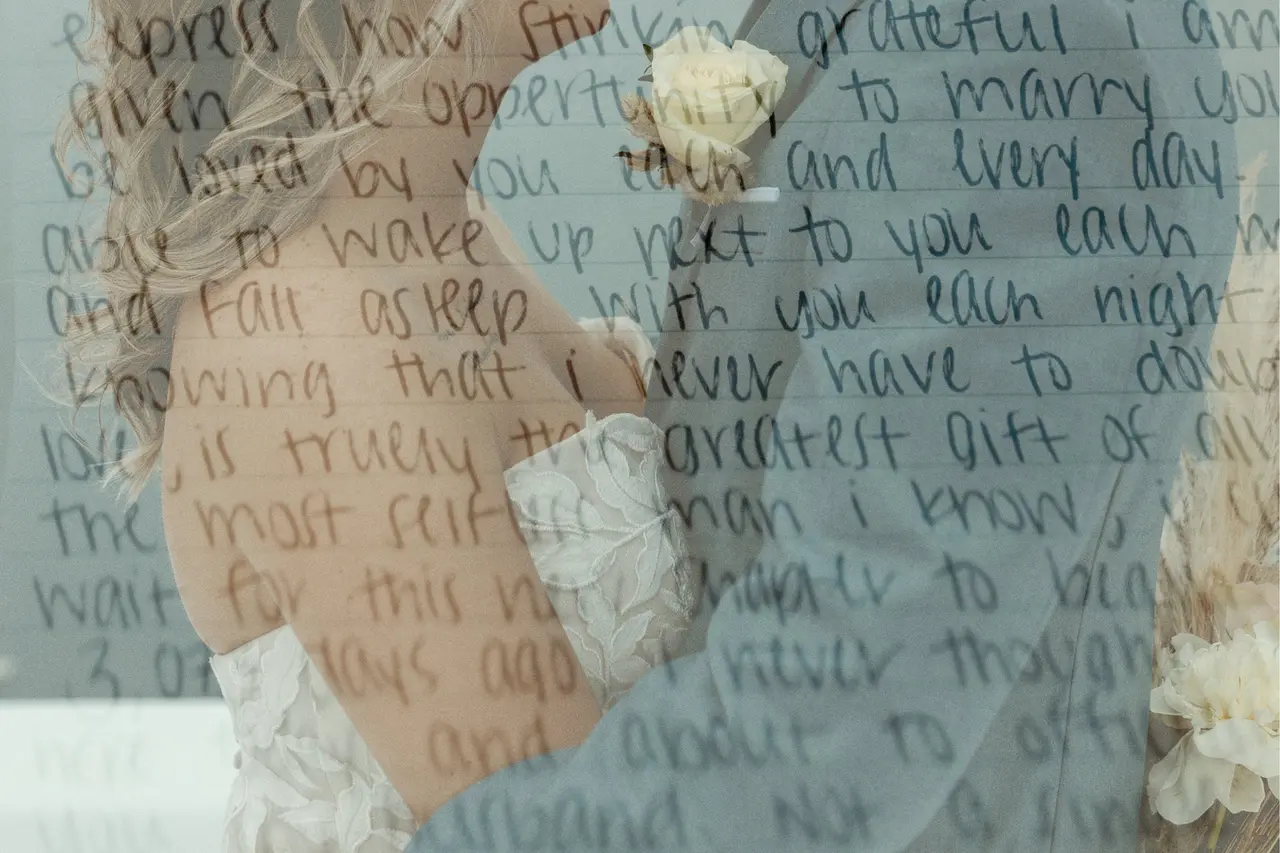 express how stinkin grateful i am
given the oppertunity to marry you
be loved by you each and every day.
able to wake up next to you each
and fall asleep with you each night
knowing that i never have to doub
love, is truely the greatest gift of all
the most selfless man i know, i
wait for this new chapter to beg
3,07 days ago i never though
here and about to offi
husband. Not a